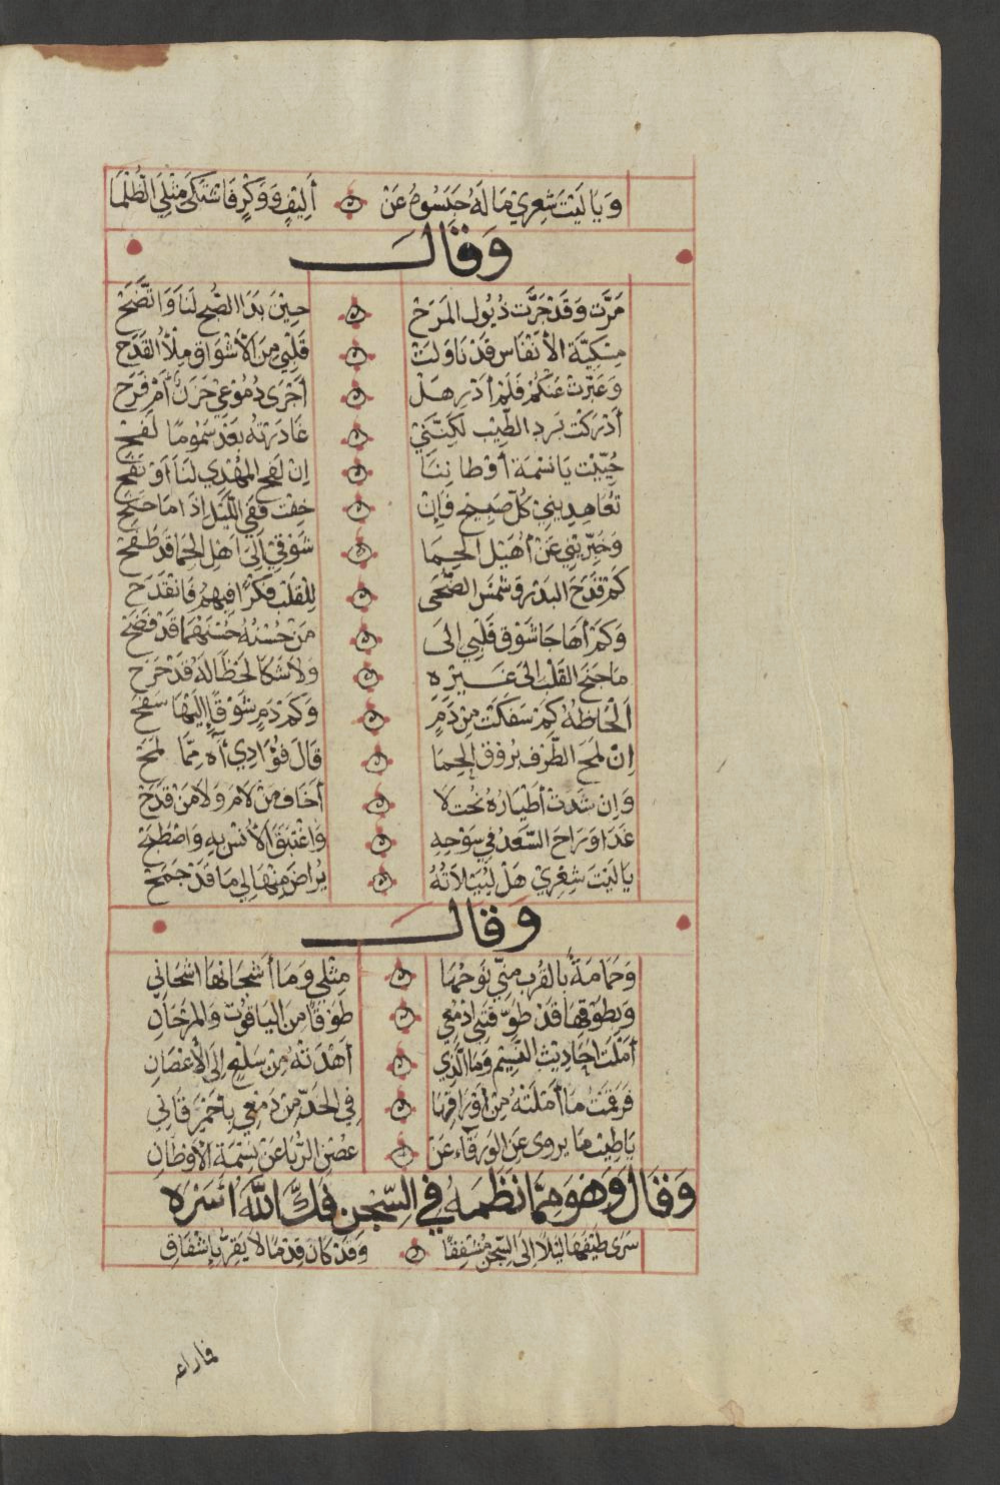 وَيَالَيْتَ شِعْرِيْ مَا لَهُ حَبَسُوهُ عَنْ أَلِيْفٍ وَوَكْرٍ فَاشْتَكَى مِثْلِيَ الظُّلْمَا
وَقَالَ
مَرَّتْ وَقَدْ جَرَّتْ ذُيُولَ المَرَحْ حِيْنَ بَدَا الصُّبْحُ لَنَا وَاتَّضَحْ
مِسْكِيَّةُ الأَنْفَاسِ قَدْ نَاوَلَتْ قَلْبِيْ مِنَ الأَشْوَاقِ مِلْأَ القَدَحْ
وَعَبَّرَتْ عَنْكُمْ فَلَمْ أَدْرِ هَلْ أَجْرَى دُمُوْعِيْ حَزَنٌ أَمْ فَرَحْ
أَدْرَكْتُ بَرْدَ الطِّيْبِ لَكِنَّنِيْ غَادَرْتُهُ بَعْدُ سَمُومًا لَفَحْ
حُيِّيْتِ يَا نَسْمَةَ أَوْطَانِنَا إِنْ لَفَحَ المُهْدِي لَنَا أَوْ نَفَحْ
تَعَاهَدِيْنِيْ كُلَّ صُبْحٍ فَإِنْ خِفْتِ فَفِي اللَّيْلِ إِذَا مَا جَنَحْ
وَخَبِّرِيْنِي عَنْ أُهَيْلِ الحِمَا شَوْقِيْ إِلَى أَهْلِ الحِمَا قَدْ طَفَحْ
كَمْ قَدَحَ البَدْرُ وَشَمْسُ الضُّحَى لِلْقَلْبِ فِكْرًا فِيهِمُ فَانْقَدَحْ
وَكَمْ أَهَاجَا شَوْقَ قَلْبِي إِلَى مَنْ حُسْنُهُ حُسْنَهُمَا قَدْ فَضَحْ
مَا جَنَحَ القَلْبُ إِلَى غَيْرِهِ وَلَا شَكَا لَحْظًا لَهُ قَدْ جَرَحْ
أَلْحَاظُهُ كَمْ سَفَكَتْ مِنْ دَمٍ وَكَمْ دَمٍ شَوْقًا إِلَيْهَا سَفَحْ
إِنْ لَمَحَ الطَّرْفُ بُرُوْقَ الحِمَا قَالَ فُؤَادِي آهِ مِمَّا لَمَحْ
وَإِنْ شَدَتْ أَطْيَارُهُ نُحْتُ لَا أَخَافُ مَنْ لَامَ وَلَا مَنْ قَدَحْ
غَدَا وَرَاحَ السَّعْدُ فِي سَوْحِهِ وَاغْتَبَقَ الأُنْسُ بِهِ وَاصْطَبَحْ
يَا لَيْتَ شِعْرِيْ هَلْ لُيَيْلَاتُهُ يُرَاضُ مِنْهَا لِي مَا قَدْ جَمَحْ
وَقَالَ
وَحَمَامَةٌ بِالقُرْبِ مِنِّي نَوْحُهَا مِثْلِي وَمَا أَشْجَانُهَا أَشْجَانِي
وَبِطَوْقِهَا قَدْ طَوَّقَتْنِي أَدْمُعِي طَوْقًا مِنَ اليَاقُوتِ وَالمَرْجَانِ
أَمْلَتْ أَحَادِيْثَ النَّسِيْمِ وَمَا الَّذِي أَهْدَتْهُ مِنْ سَلْعٍ إِلَى الأَغْصَانِ
فَرَقَمْتُ مَا أَمْلَتْهُ مِنْ أَوْرَاقِهَا فِي الخَدِّ مِنْ دَمْعِي بِأَحْمَرَ قَانِي
يَا طِيْبَ مَا يُروَى عَنِ الوَرْقَاءِ عَنْ غُصْنِ الرُّبَا عَنْ نَسْمَةِ الأَوْطَانِ
وَقَالَ وَهُوَ مِمَّا نَظَمَهُ فِي السِّجْنِ فَكَّ اللّٰهُ أَسْرَهُ
سَرَى طَيْفُهَا لَيْلًا إِلَى السِّجْنِ مُشْفِقًا وَقَدْ كَانَ قِدْمًا لَا يَقِرُّ بِإِشْفَاقِ
فماراعه